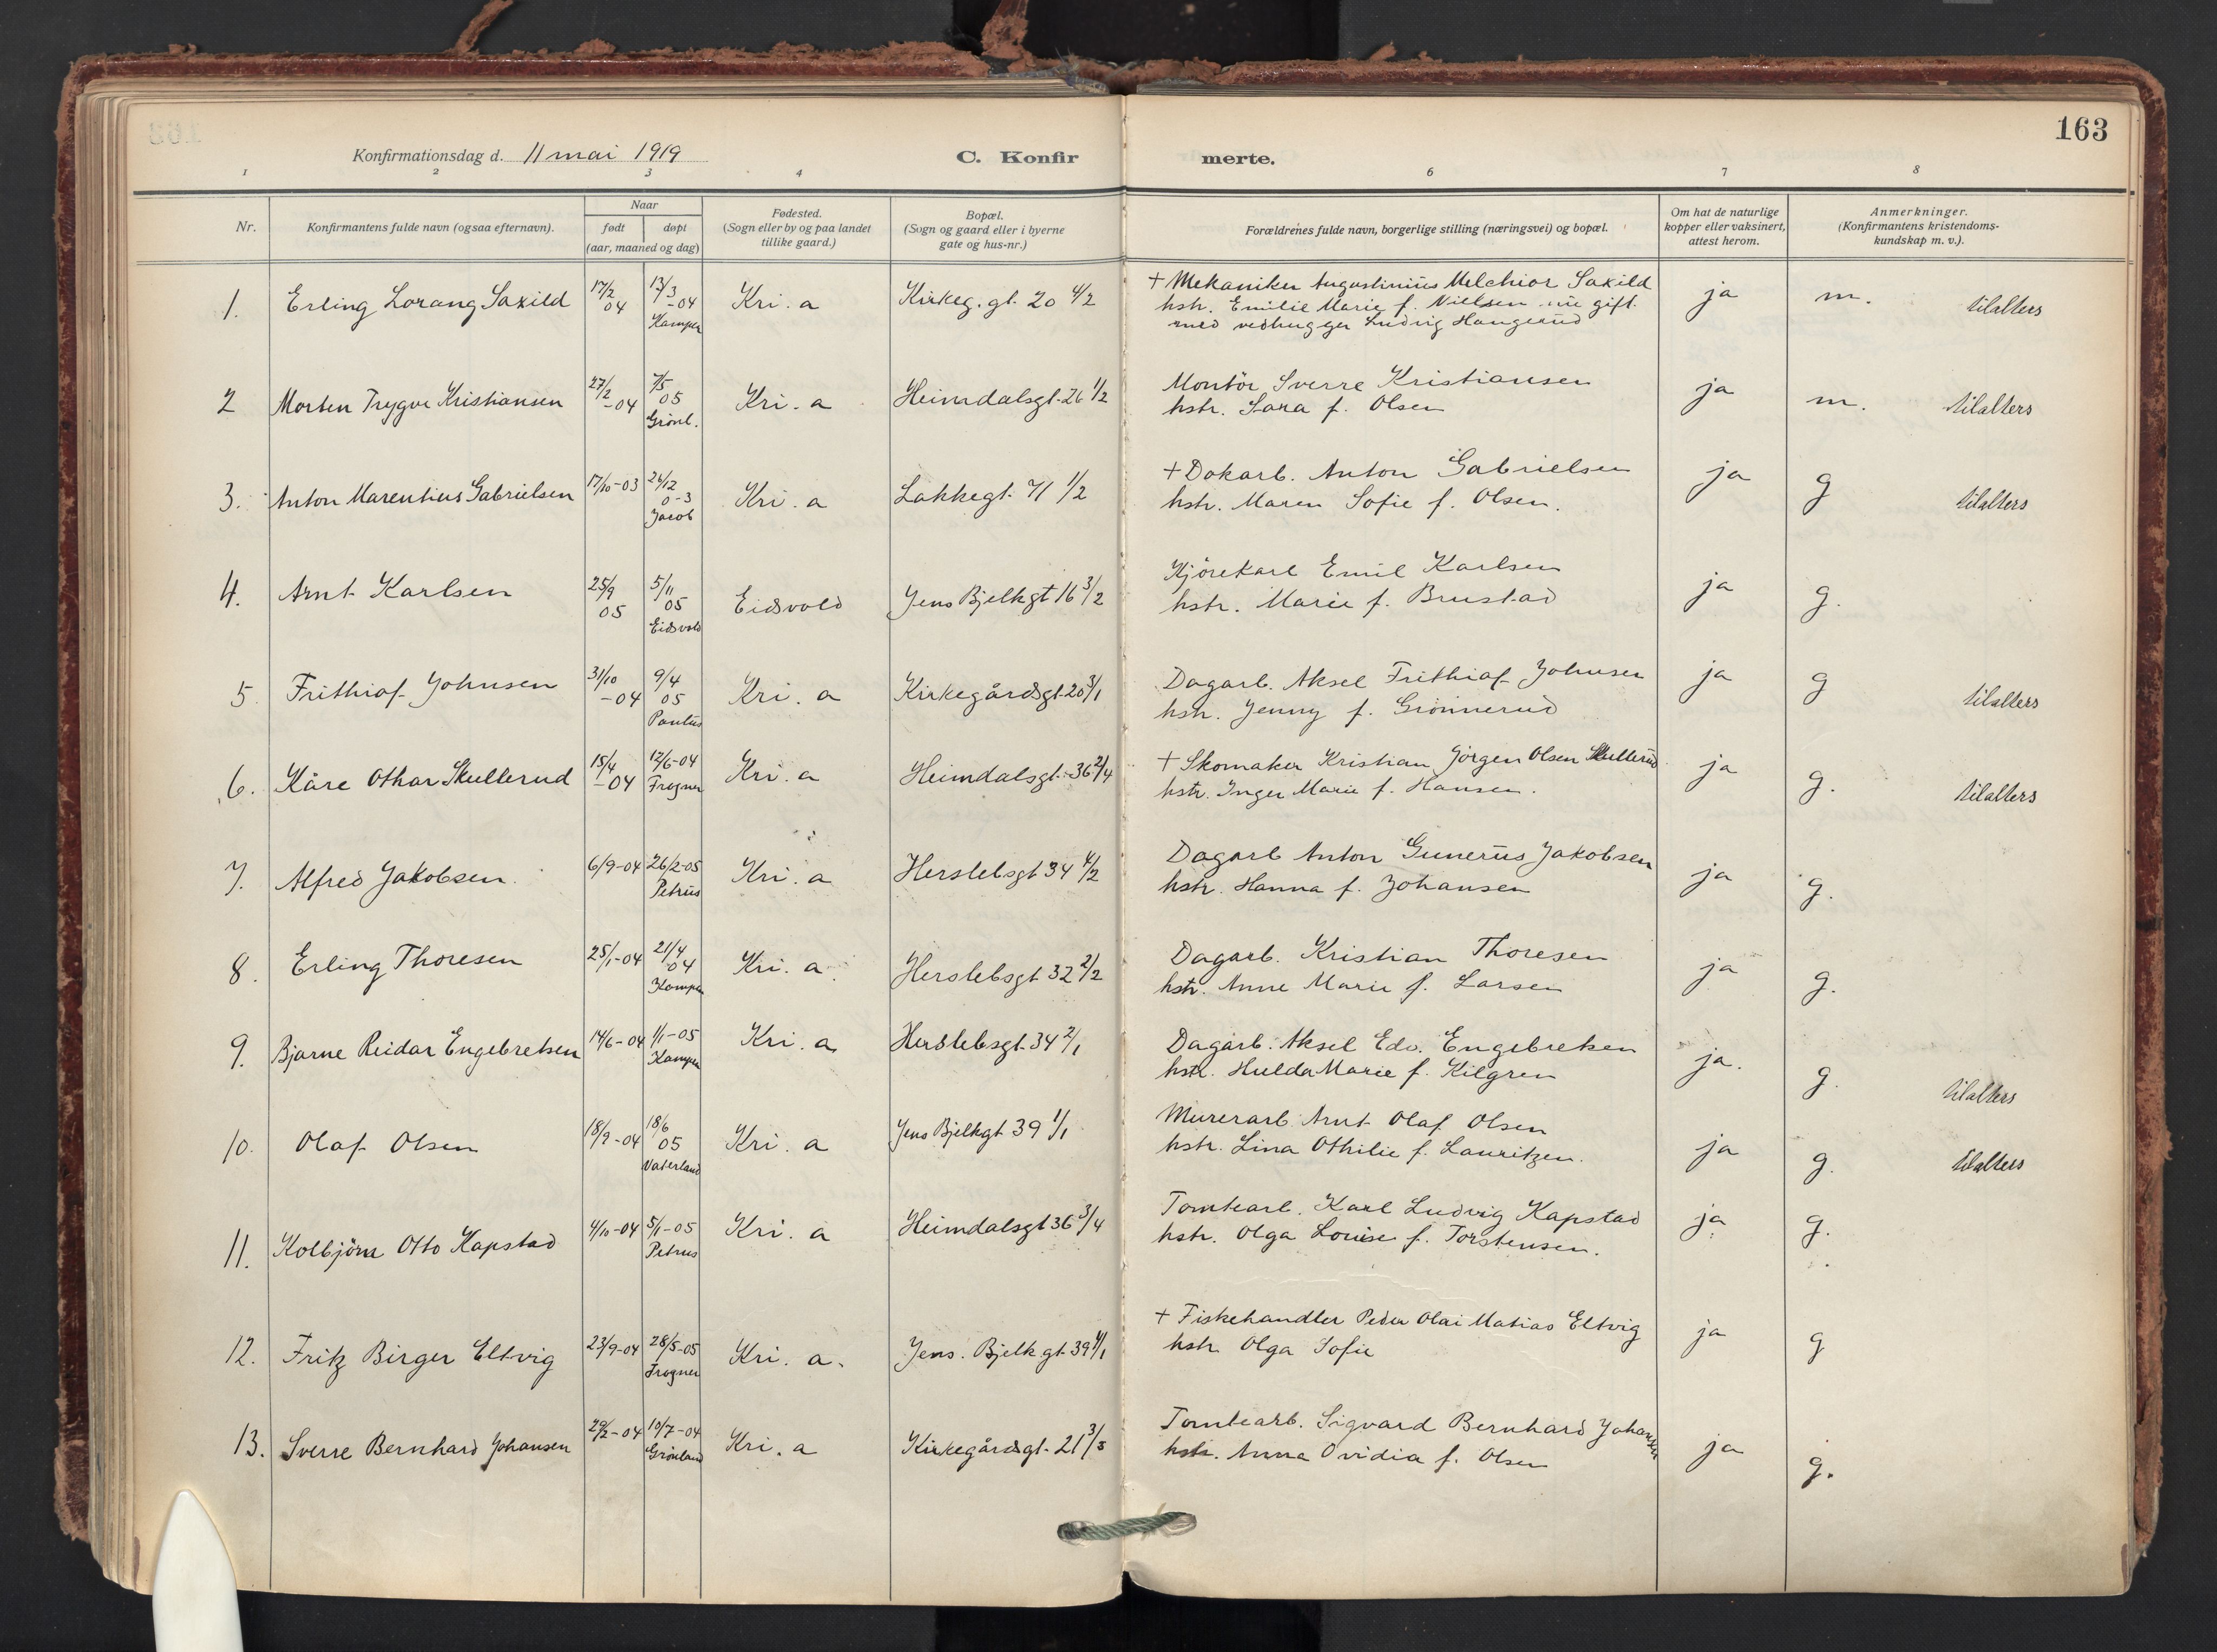 163
Konfirmationsdag d. 11 mai 1919
C. Konfir merte.
1 2 3 4 6 7 8
Nr.
Konfirmantens fulde navn (ogsaa efternavn).
Naar
født døpt
(aar, maaned og dag)
Fødested.
(Sogn eller by og paa landet
tillike gaard.)
Bopæl.
(Sogn og gaard eller i byerne
gate og hus-nr.)
Forældrenes fulde navn, borgerlige stilling (næringsvei) og bopæl.
Om hat de naturlige
kopper eller vaksinert,
attest herom.
Anmerkninger.
(Konfirmantens kristendoms-
kundskap m. v.).
1. Erling Lorang Saxild 17/2 04 13/3 -04 Kampen Kri. a Kirkeg. gt. 20 4/2 + Mekaniker Augustinius Melchior Saxild ja m. tilalters
hstr. Emilie Marie f. Nielsen nu gift
med vedhugger Ludvig Haugerud
2 Morten Trygve Kristiansen 27/2 -04 7/5 05 Grönl. Kri. a Heimdalsgt. 26 1/2 Montör Sverre Kristiansen ja m. tilalters
hstr. Sara f. Olsen
3. Anton Marentius Gabrielsen 17/10-03 26/12 0-3 Jacob Kri. a Lakkegt. 71 1/2 + Dokarb. Anton Gabrielsen ja g tilalters
hstr. Maren Sofie f. Olsen.
4. Arnt Karlsen 25/9 05 5/11 05 Eidsvold Eidsvold Jens Bjelkgt 16 3/2 Kjörekarl Emil Karlsen ja g.
hstr. Marie f. Brustad
5. Frithiof Johnsen 31/10 -04 9/4 05 Paulus Kri. a Kirkegårdsgt. 20 3/1 Dagarb. Aksel Frithiof Johnsen ja g tilalters
hstr. Jenny f. Grönnerud
6. Kåre Othar Skullerud 15/4 -04 12/6-04 Frogner Kri. a Heimdalsgt. 36 2/4 + Skomaker Kristian Jörgen Olsen Skullerud ja g. tilalters
hstr. Inger Marie f. Hansen.
7. Alfred Jakobsen. 6/9-04 26/2-05 Petrus Kri. a Herslebsgt 34 4/2 Dagarb Anton Gunerius Jakobsen ja g.
hstr. Hanna f. Johansen
8. Erling Thoresen 25/1-04 21/4 04 Kampen Kri. a. Herslebsgt 32 2/2 Dagarb. Kristian Thoresen ja g.
hstr. Anne Marie f. Larsen
9. Bjarne Reidar Engebretsen 14/6-04 1/1-05 Kampen Kri. a Herslebsgt. 34 2/1 Dagarb. Aksel Edv. Engebretsen ja. g. tilalters
hstr. Hulda Marie f. Kilgren
10. Olaf Olsen 18/9-04 18/6 05 Vaterland Kri. a Jens Bjelkgt 39 1/1 Murerarb Arnt Olaf Olsen ja g. tilalters
hstr. Lina Othilie f. Lauritzen.
11. Kolbjörn Otto Kapstad 4/10-04 5/1-05 Petrus Kri. a Heimdalsgt 36 3/4 Tomtearb. Karl Ludvig Kapstad ja g.
hstr. Olga Louise f. Torstensen.
12. Fritz Birger Eltvig 23/9-04 28/5-05 Frogner Kri. a. Jens. Bjelkgt. 39 4/1 + Fiskehandler Peder Olai Matias Eltvig ja g
hstr Olga Sofie
13. Sverre Bernhard Johansen 29/2-04 10/7-04 Grönland Kri. a Kirkegårdsgt. 21 3/3 Tomtearb. Sigvard Bernhard Johansen ja g.
hstr. Anna Ovidia f. Olsen